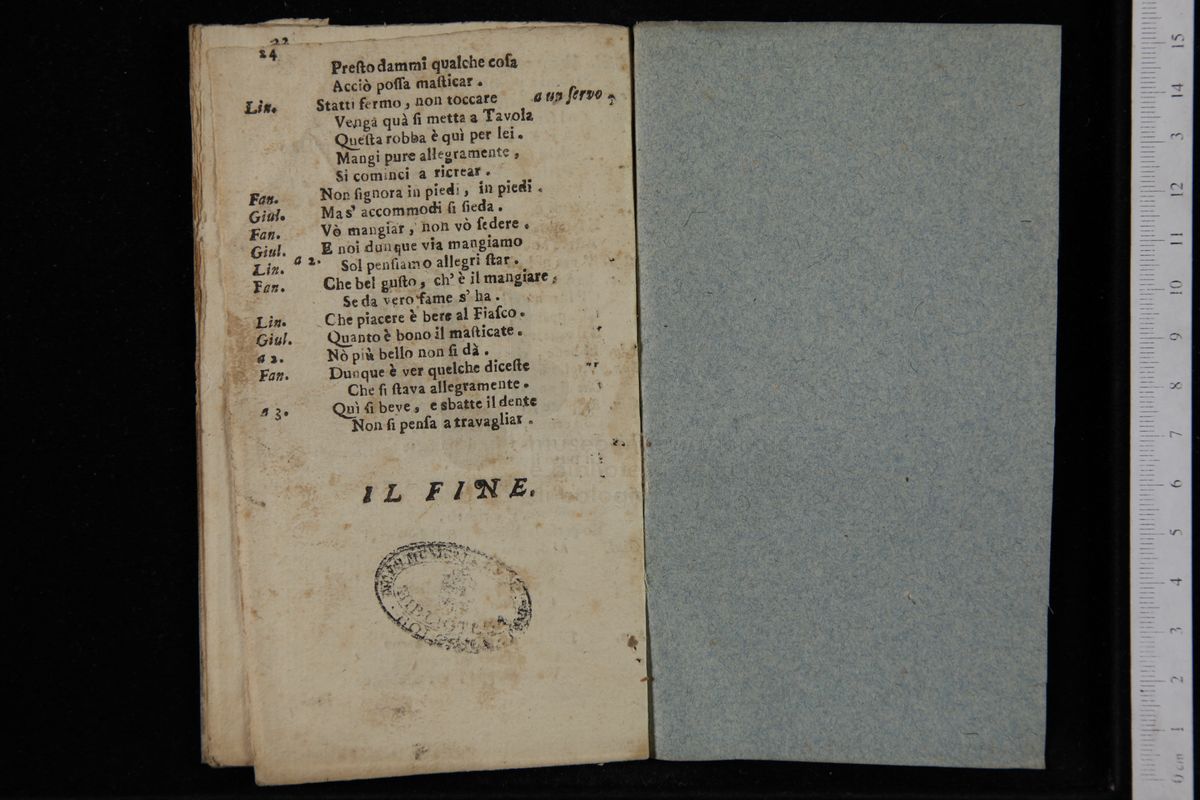 22
24
Preſto dammi qualche coſa
Acciò poſſa maſticar.
Lin. Statti fermo, non toccare a un ſervo,
Venga quà ſi metta a Tavola
Queſta robba è quì per lei.
Mangi pure allegramente,
Si cominci a ricrear.
Fan. Non ſignora in piedi, in piedi.
Giul. Ma s' accommodi ſi ſieda.
Fan. Vò mangiar, non vò ſedere.
Giul. E noi dunque via mangiamo
Lin. a 2. Sol penſiamo allegri ſtar.
Fan. Che bel guſto, ch' è il mangiare,
Se da vero fame s' ha.
Lin. Che piacere è bere al Fiaſco.
Giul. Quanto è bono il maſticate.
a 2. Nò più bello non ſi dà.
Fan. Dunque è ver quelche diceſte
Che ſi ſtava allegramente.
a 3. Quì ſi beve, e sbatte il dente
Non ſi penſa a travagliar.
IL FINE.
BIBLIOTECA
15
14
13
12
11
10
9
8
7
6
5
4
3
2
1
0 cm